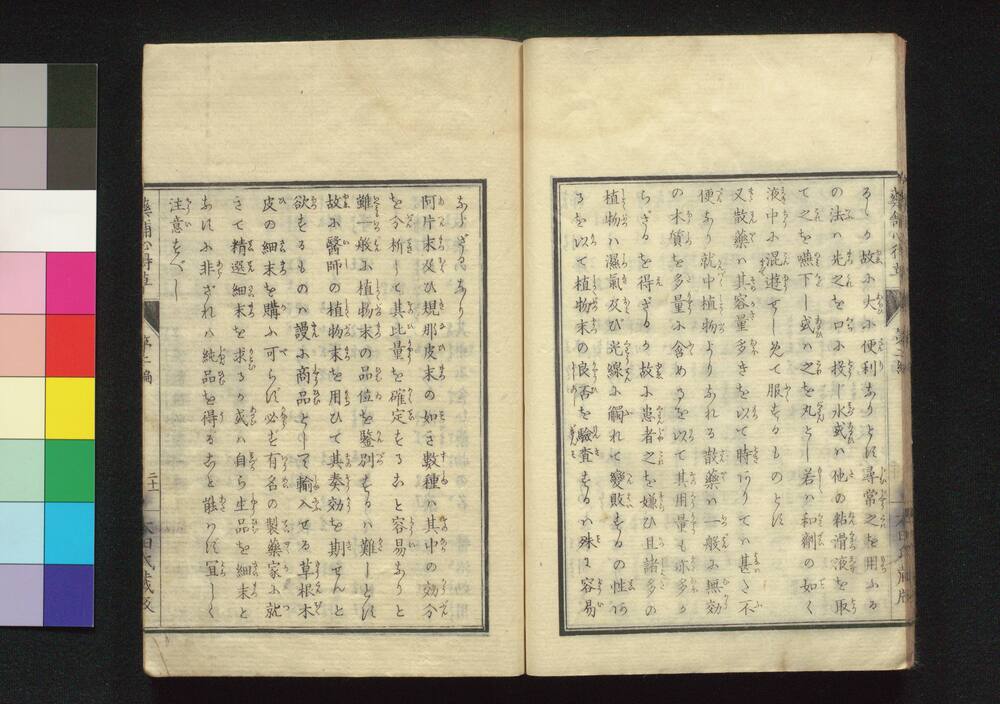 るヿり故ニ大ニ便利ありとは尋常之を用ふる
の法ハ先之を口ニ投じ水或ハ他の粘滑液を取
て之を嚥下し或ハ之を丸とし若ハ和劑の如く
液中ニ混遊せしめて服するものとは
又散藥ハ其容量多きを以て時ありてハ甚き不
便あり就中植物よりふれる散藥ハ一般ニ無効
の木質を多量ニ含めるを以て其用量も亦多か
らざるを得ざるが故ニ患者之を嫌ひ且諸多の
植物ハ濕氣及び光線ニ觸れて變敗するの性あ
るを以て植物末の良否を驗査するハ殊に容易
ならざるなり
阿片末及ひ規那皮末の如き數種ハ其中の効分
を分析して其比量を確定すること容易なりと
雖一般ニ植物末の品位を鑒別するハ難しとは
故ニ醫師の植物末を用ひて其奏効を期せんと
欲するものハ謾ニ商品として輸入せる草根木
皮の細末を購ふ可らは必ず有名の製藥家ニ就
きて精選細末を求るか或ハ自ら生品を細末と
なはニ非ざれハ純品を得ること能ハは宜しく
注意すべし
藥舖心得草 第二編 二十一